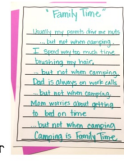 Family Time
Usually my parents drive me nuts
...but not when camping.
I spend way too much time
brushing my hair,
...but not when camping.
Dad is always on work calls,
...but not when camping.
Mom worries about getting
to bed on time
...but not when camping.
Camping is Family Time.
r